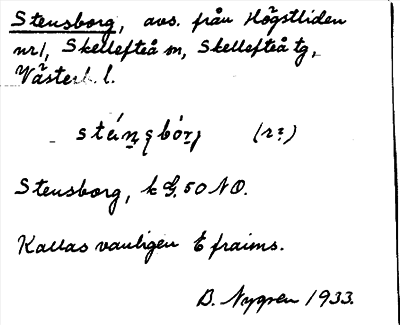 Stensborg, avs. från Högstliden
nr 1, Skellefteå m, Skellefteå tg,
Västerb. l.
(r?)
Stensborg, k G. 50 NO.
Kallas vanligen Efraims.
B. Nygren 1933.